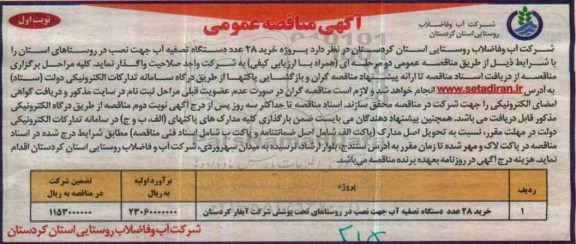 نوبت اول
آگهی مناقصه عمومی
شرکت آب وفاضلاب
روستایی استان کردستان
شرکت آب وفاضلاب روستایی استان کردستان در نظر دارد پروژه خرید ۲۸ عدد دستگاه تصفیه آب جهت نصب در روستاهای استان را
با شرایط ذیل از طریق مناقصه عمومی دو مرحله ای (همراه با ارزیابی کیفی) به شرکت واجد صلاحیت واگذار نماید. کلیه مراحل برگزاری
مناقصه از دریافت اسناد مناقصه تا ارائه پیشنهاد مناقصه گران و بازگشایی پاکتها از طریق درگاه سامانه تدارکات الکترونیکی دولت (ستاد)
به آدرس www.setadiran.ir انجام خواهد شد و لازم است مناقصه گران در صورت عدم عضویت قبلی مراحل ثبت نام در سایت مذکور و دریافت گواهی
امضای الکترونیکی را جهت شرکت در مناقصه محقق سازند. اسناد مناقصه تا حداکثر سه روز پس از درج آگهی نوبت دوم مناقصه از طریق درگاه الکترونیکی
مذکور قابل دریافت می باشد. همچنین پیشنهاد دهندگان می بایست ضمن بارگذاری کلیه مدارک های پاکتهای (الف، ب و ج) در سامانه تدارکات الکترونیکی
دولت در مهلت مقرر، نسبت به تحویل اصل مدارک (پاکت الف شامل اصل ضمانتنامه و پاکت ب شامل اسناد فنی مناقصه) مطابق شرایط درج شده در اسناد
مناقصه در پاکت لاک و مهر شده تا زمان مقرر به آدرس سنندج، بلوار ارشاد، نرسیده به میدان سهروردی، شرکت آب و فاضلاب روستایی استان کردستان اقدام
نماید. هزینه درج آگهی در روزنامه بعهده برنده مناقصه می‌باشد.
ردیف پروژه برآورد اولیه به ریال تضمین شرکت در مناقصه به ریال
۱ خرید ۲۸ عدد دستگاه تصفیه آب جهت نصب در روستاهای تحت پوشش شرکت آبفار کردستان ۲۳۰۶۰۰۰۰۰۰۰ ۱۱۵۳۰۰۰۰۰۰
شرکت آب وفاضلاب روستایی استان کردستان